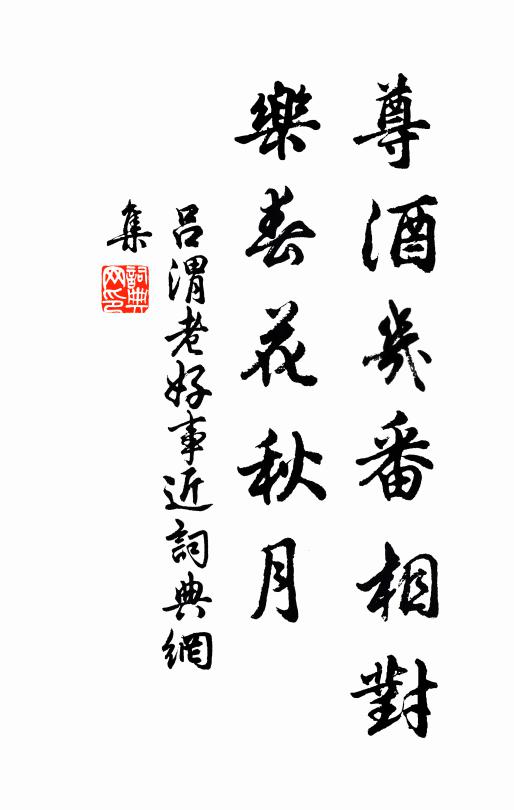 尊酒幾番相對
樂春花秋月
呂渭老好事近詞典網
集
詞典網印